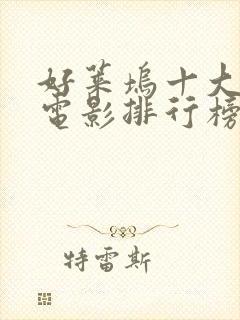 好莱坞十大
电影排行榜
特雷斯